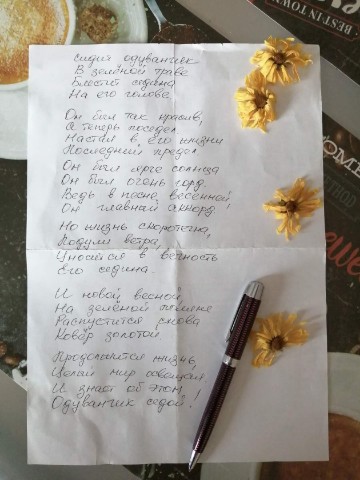 Сидит одуванчик
В зелёной траве
Блестит седина
На его голове.
Он был так красив,
А теперь поседел
Настал в его жизни
Последний предел.
Он был ярче солнца
Он был очень горд
Ведь в песне весенней
Он главный аккорд.
Но жизнь скоротечна,
Подули ветра,
Уносится в вечность
Его седина.
И новой весной
На зелёной
Распустится снова
Ковёр золотой.
Продолжится жизнь,
Целый мир
И знает об этом
Одуванчик седой!
BEST-IN TOWN